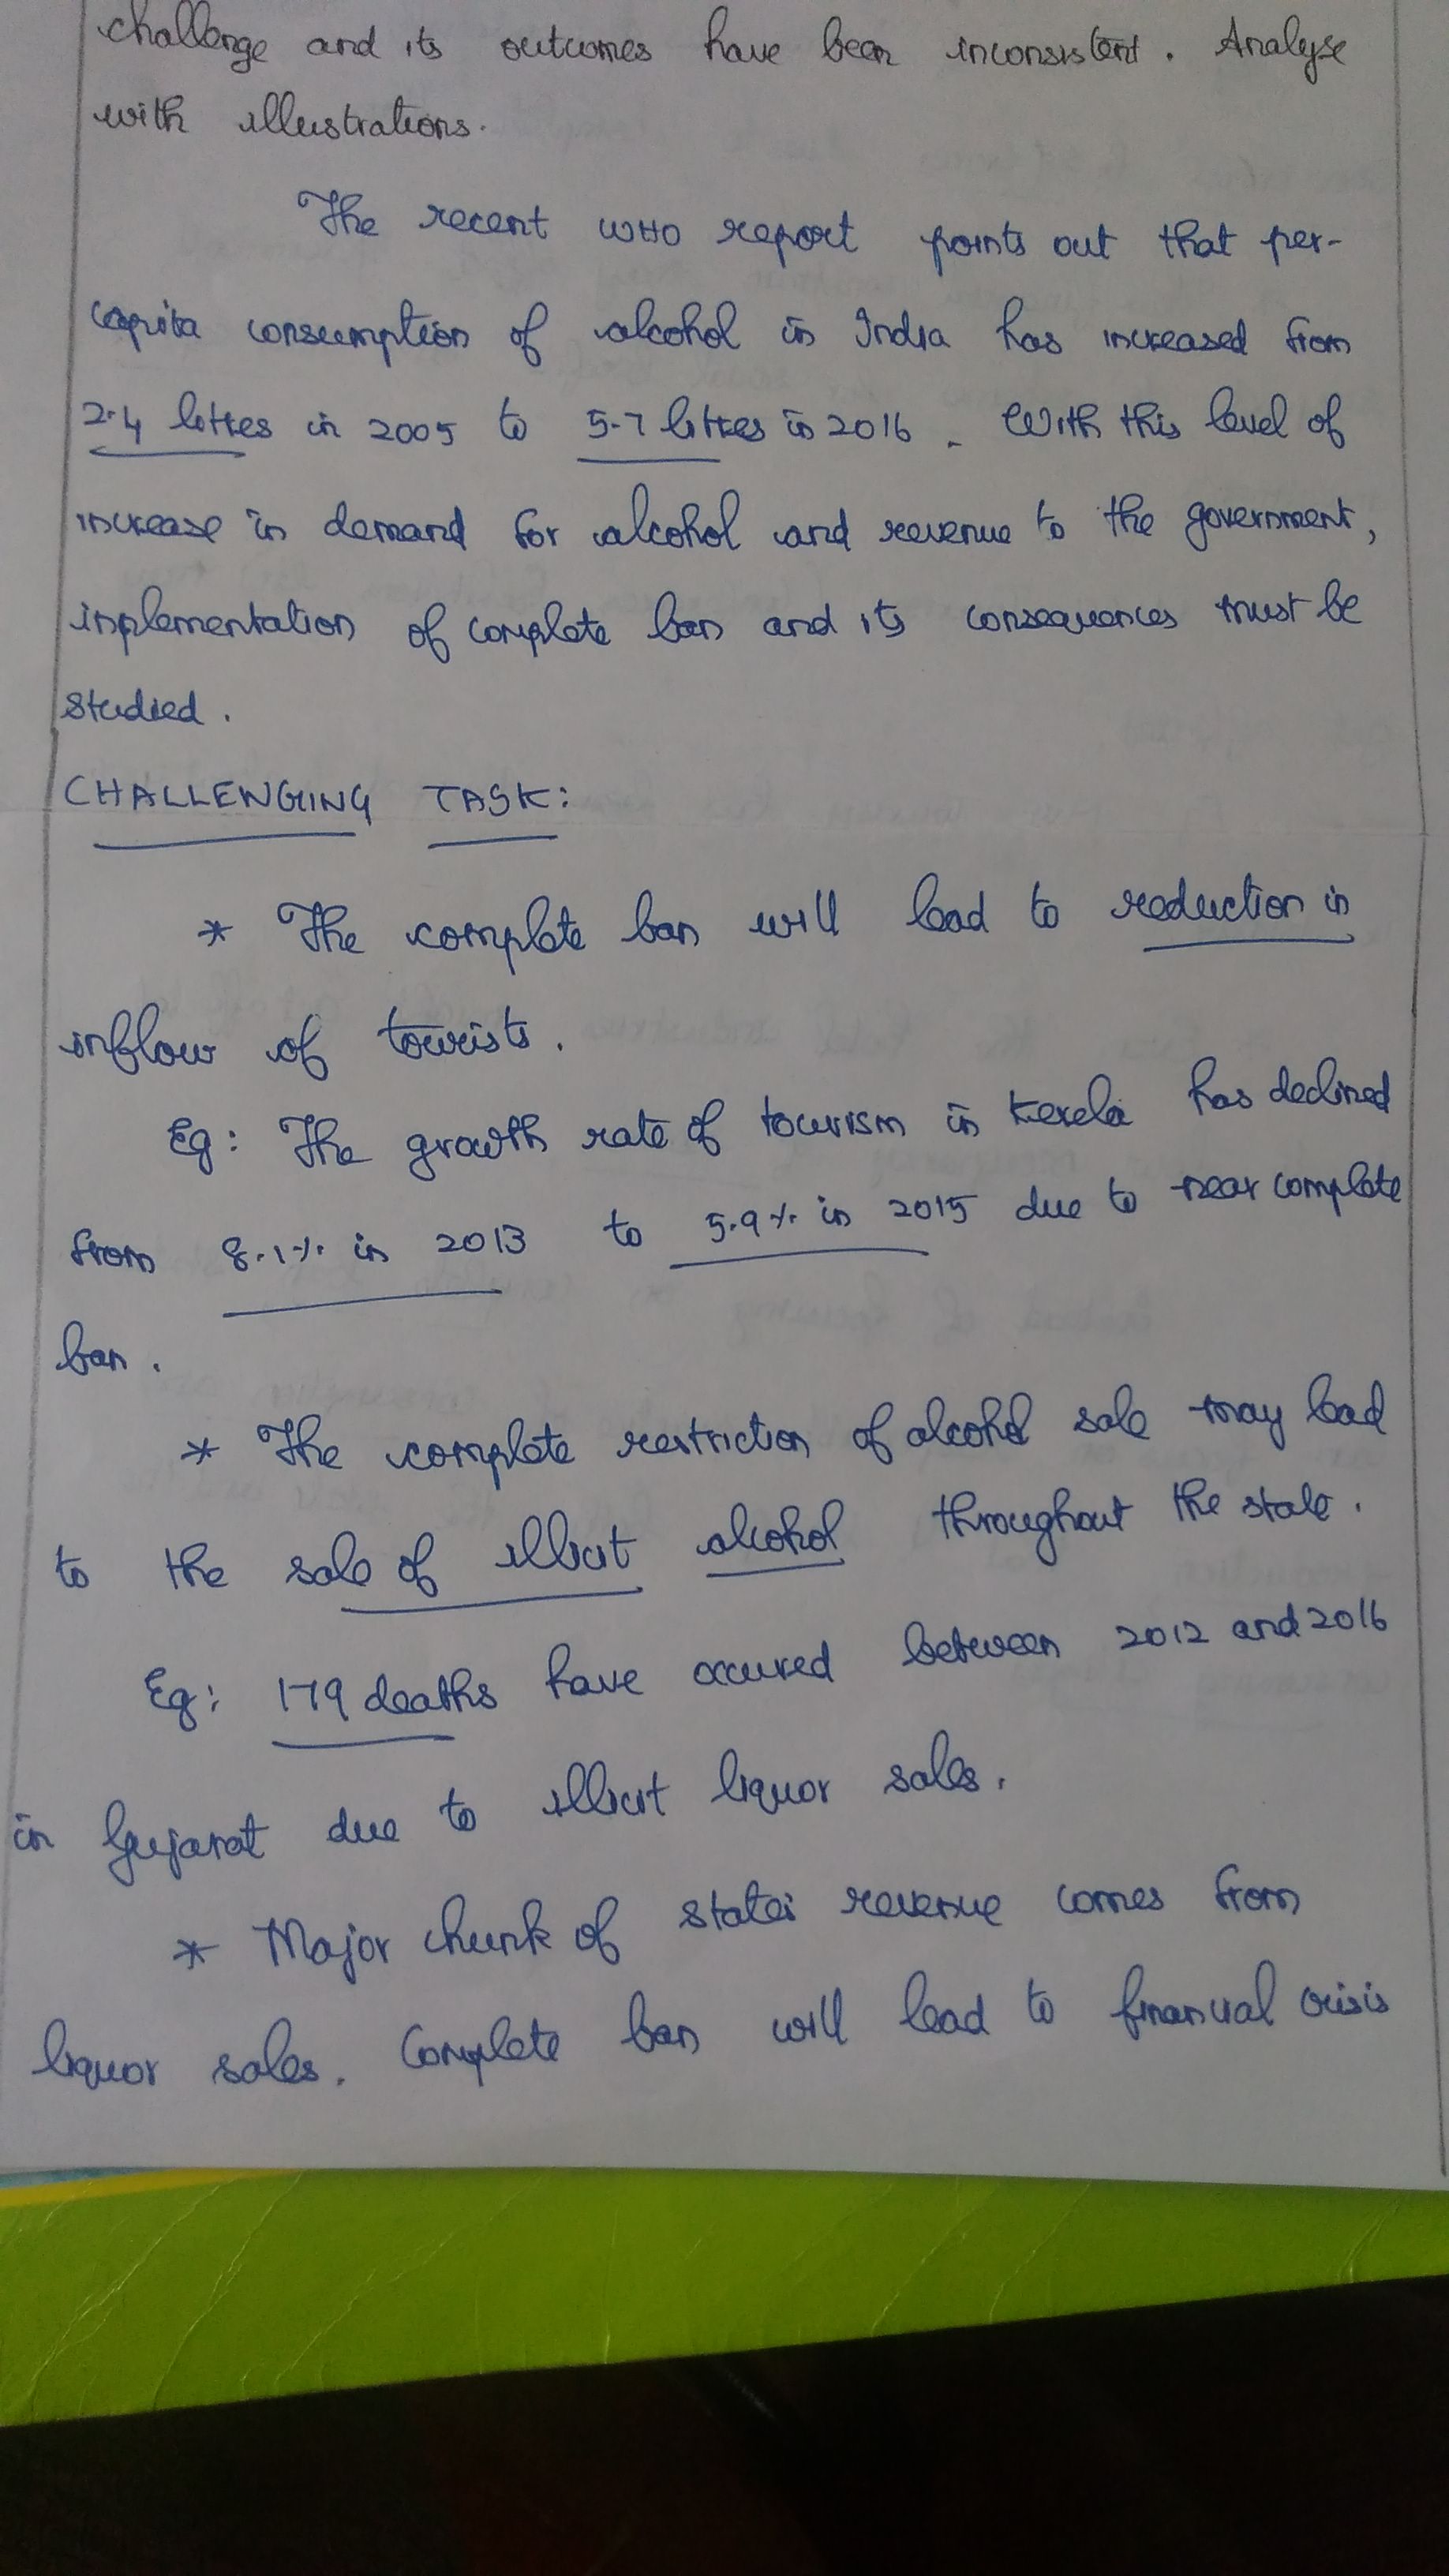 challenge and its outcomes have been inconsistent. Analyse
with illustrations.
The recent WHO report points out that per-
capita consumption of alcohol in India has increased from
2.4 littes in 2005 to 5.7 littes in 2016. With this level of
increase in demand for alcohol and revenue to the government,
implementation of complete ban and its consequences must be
studied.
CHALLENGING TASK:
* The complete ban will lead to reduction in
inflow of tourists.
Eg: The growth rate of tourism in Kerela has declined
from 8.1% in 2013 to 5.9% in 2015 due to near complete
ban.
* The complete restriction of alcohol sale may lead
to the sale of illicit alcohol throughout the state.
Eg: 179 deaths have occured between 2012 and 2016
in Gujarat due to illicit liquor sales.
* Major chunk of states revenue comes from
liquor sales. Complete ban will lead to financial crisis